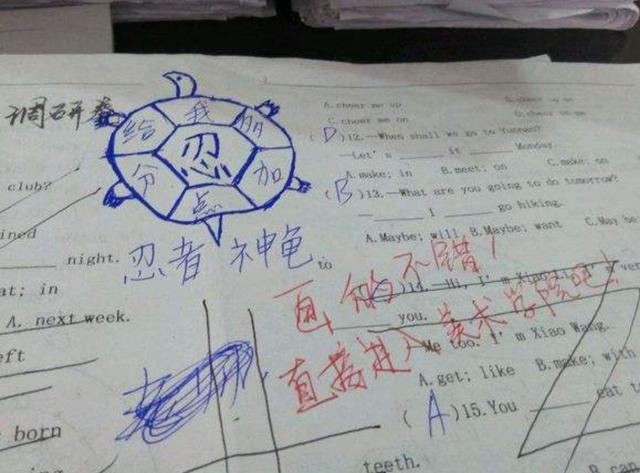 调研卷
给 我 加
分 点 加
忍
忍者 神龟
画的不错！
直接进入美术学院吧！
club?
ined
night.
at; in
A. next week.
eft
born
to
A. cheer me up
C. cheer me on
(D)12.—When shall we go to Yunnan?
—Let's ____ it ____ Monday.
A. make; in B. meet; on C. make; on
(B)13.—What are you going to do tomorrow?
—____ I ____ go hiking.
A. Maybe; will B. Maybe; want C. May be
)14.—Hi, I'm Xiao Li.
you.
Me too. I'm Xiao Wang.
A. get; like B. make; with
(A)15. You ____ eat
teeth.